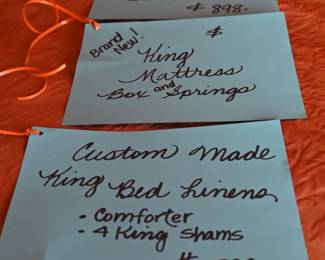 $ 898.
Brand New! $
King
Mattress
Box and Springs
Custom Made
King Bed Linens
- Comforter
- 4 King Shams